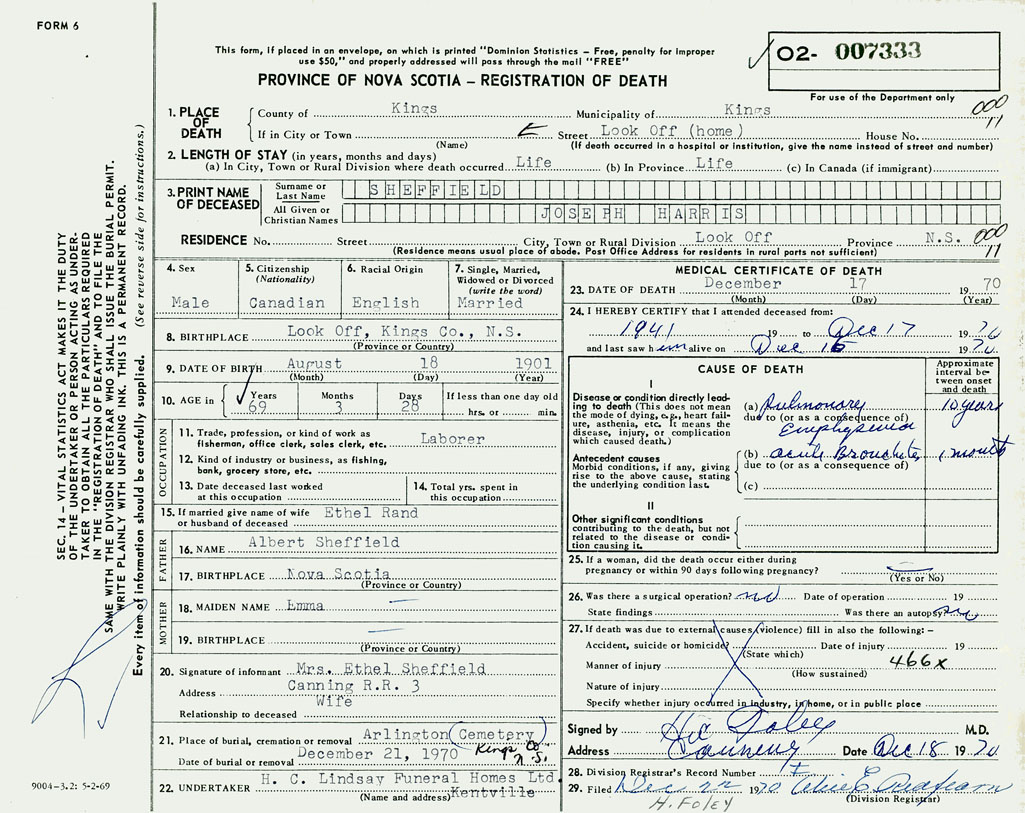 FORM 6
This form, if placed in an envelope, on which is printed "Dominion Statistics – Free, penalty for improper
use $50," and properly addressed will pass through the mail "FREE"
O2- 007333
PROVINCE OF NOVA SCOTIA – REGISTRATION OF DEATH
For use of the Department only
SEC. 14 – VITAL STATISTICS ACT MAKES IT THE DUTY
OF THE UNDERTAKER OR PERSON ACTING AS UNDER-
TAKER TO OBTAIN ALL THE PARTICULARS REQUIRED
IN THE "REGISTRATION OF DEATH" AND TO FILE THE
SAME WITH THE DIVISION REGISTRAR WHO SHALL ISSUE THE BURIAL PERMIT.
WRITE PLAINLY WITH UNFADING INK. THIS IS A PERMANENT RECORD.
Every item of information should be carefully supplied. (See reverse side for instructions.)
1. PLACE OF DEATH
County of Kings Municipality of Kings 000
11
If in City or Town Street Look Off (home) House No.
(Name) (If death occurred in a hospital or institution, give the name instead of street and number)
2. LENGTH OF STAY (in years, months and days)
(a) In City, Town or Rural Division where death occurred Life (b) In Province Life (c) In Canada (if immigrant)
3. PRINT NAME OF DECEASED
Surname or Last Name SHEFFIELD
All Given or Christian Names JOSEPH HARRIS
RESIDENCE No. Street City, Town or Rural Division Look Off Province N.S. 000
11
(Residence means usual place of abode. Post Office Address for residents in rural parts not sufficient)
4. Sex
Male
5. Citizenship
(Nationality)
Canadian
6. Racial Origin
English
7. Single, Married,
Widowed or Divorced
(write the word)
Married
8. BIRTHPLACE Look Off, Kings Co., N.S.
(Province or Country)
9. DATE OF BIRTH August 18 1901
(Month) (Day) (Year)
10. AGE in Years Months Days If less than one day old
69 3 28 hrs. or min.
OCCUPATION
11. Trade, profession, or kind of work as
fisherman, office clerk, sales clerk, etc. Laborer
12. Kind of industry or business, as fishing,
bank, grocery store, etc.
13. Date deceased last worked
at this occupation
14. Total yrs. spent in
this occupation
15. If married give name of wife
or husband of deceased Ethel Rand
FATHER
16. NAME Albert Sheffield
17. BIRTHPLACE Nova Scotia
(Province or Country)
MOTHER
18. MAIDEN NAME Emma —
19. BIRTHPLACE —
(Province or Country)
20. Signature of informant Mrs. Ethel Sheffield
Address Canning R.R. 3
Wife
Relationship to deceased
21. Place of burial, cremation or removal Arlington (Cemetery)
Kings Co. N.S.
Date of burial or removal December 21, 1970
22. UNDERTAKER H. C. Lindsay Funeral Homes Ltd.
(Name and address) Kentville
9004-3.2: 5-2-69
MEDICAL CERTIFICATE OF DEATH
23. DATE OF DEATH December 17 1970
(Month) (Day) (Year)
24. I HEREBY CERTIFY that I attended deceased from:
1941 19 to Dec 17 1970
and last saw him alive on Dec 16 1970
CAUSE OF DEATH
Approximate
interval be-
tween onset
and death
I
Disease or condition directly lead-
ing to death (This does not mean
the mode of dying, e.g., heart fail-
ure, asthenia, etc. It means the
disease, injury, or complication
which caused death.)
(a) Pulmonary 10 years
due to (or as a consequence of)
Emphysema
Antecedent causes
Morbid conditions, if any, giving
rise to the above cause, stating
the underlying condition last.
(b) acute Bronchitis 1 month
due to (or as a consequence of)
(c)
II
Other significant conditions
contributing to the death, but not
related to the disease or condi-
tion causing it.
25. If a woman, did the death occur either during
pregnancy or within 90 days following pregnancy? —
(Yes or No)
26. Was there a surgical operation? no Date of operation 19
State findings Was there an autopsy? no
27. If death was due to external causes (violence) fill in also the following: –
Accident, suicide or homicide? Date of injury 19
(State which)
Manner of injury 466x
(How sustained)
Nature of injury
Specify whether injury occurred in industry, in home, or in public place
Signed by Foley M.D.
Address Canning Date Dec 18 1970
28. Division Registrar's Record Number
29. Filed Dec 22 1970
(Division Registrar)
H. FOLEY